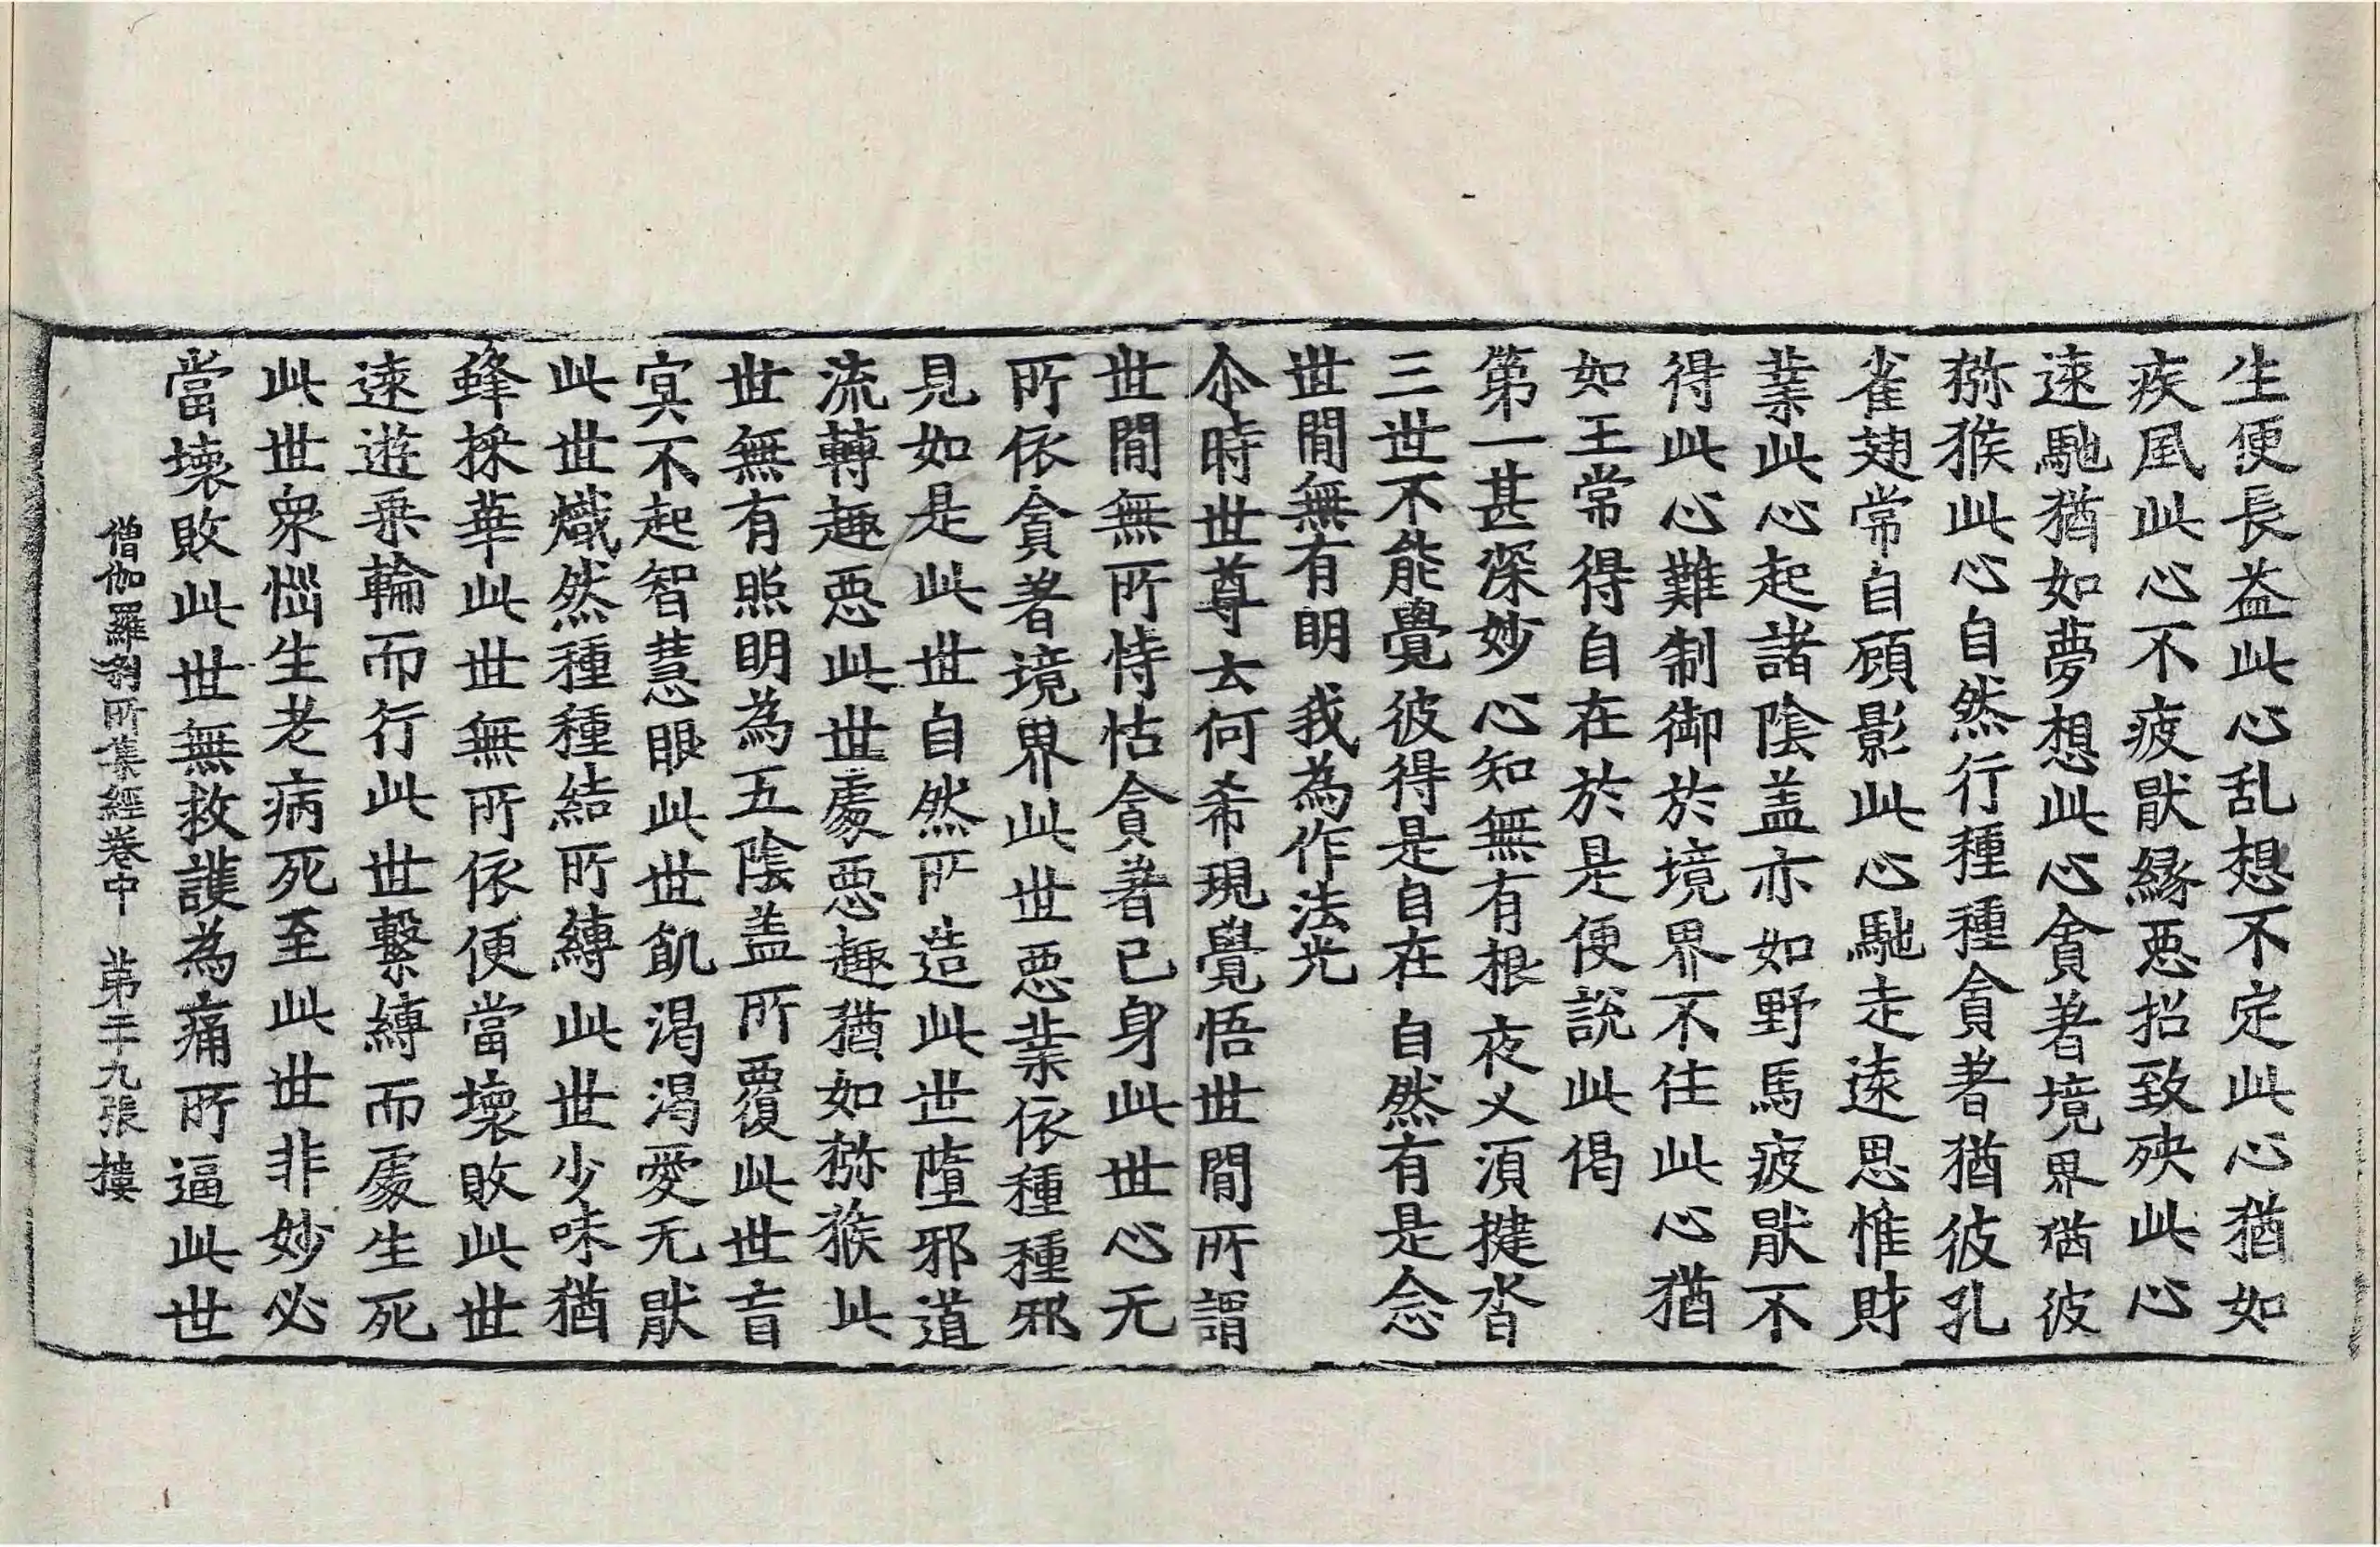 生便長益此心乱想不定此心猶如
疾風此心不疲猒緣惡招致殃此心
速馳猶如夢想此心貪著境界猶彼
猕猴此心自然行種種貪著猶彼孔
雀翅常自顧影此心馳走遠思惟財
業此心起諸陰盖亦如野馬疲猒不
得此心難制御於境界不住此心猶
如王常得自在於是便說此偈
第一甚深妙 心知無有根 夜乂湏揵沓
三世不能覺 彼得是自在 自然有是念
世間無有明 我為作法光
尒時世尊云何希現覺悟世間所謂
世間無所恃怙貪著已身此世心无
所依貪著境界此世惡業依種種邪
見如是此世自然所造此世墮邪道
流轉趣惡此世處惡趣猶如猕猴此
世無有照明為五陰盖所覆此世盲
冥不起智慧眼此世飢渴渴愛无猒
此世熾然種種結所縛此世少味猶
蜂採華此世無所依便當壞敗此世
速遊乘輪而行此世繫縛而處生死
此世衆惱生老病死至此世非妙必
當壞敗此世無救護為痛所逼此世
僧伽羅刹所集經卷中 第二十九張 摟